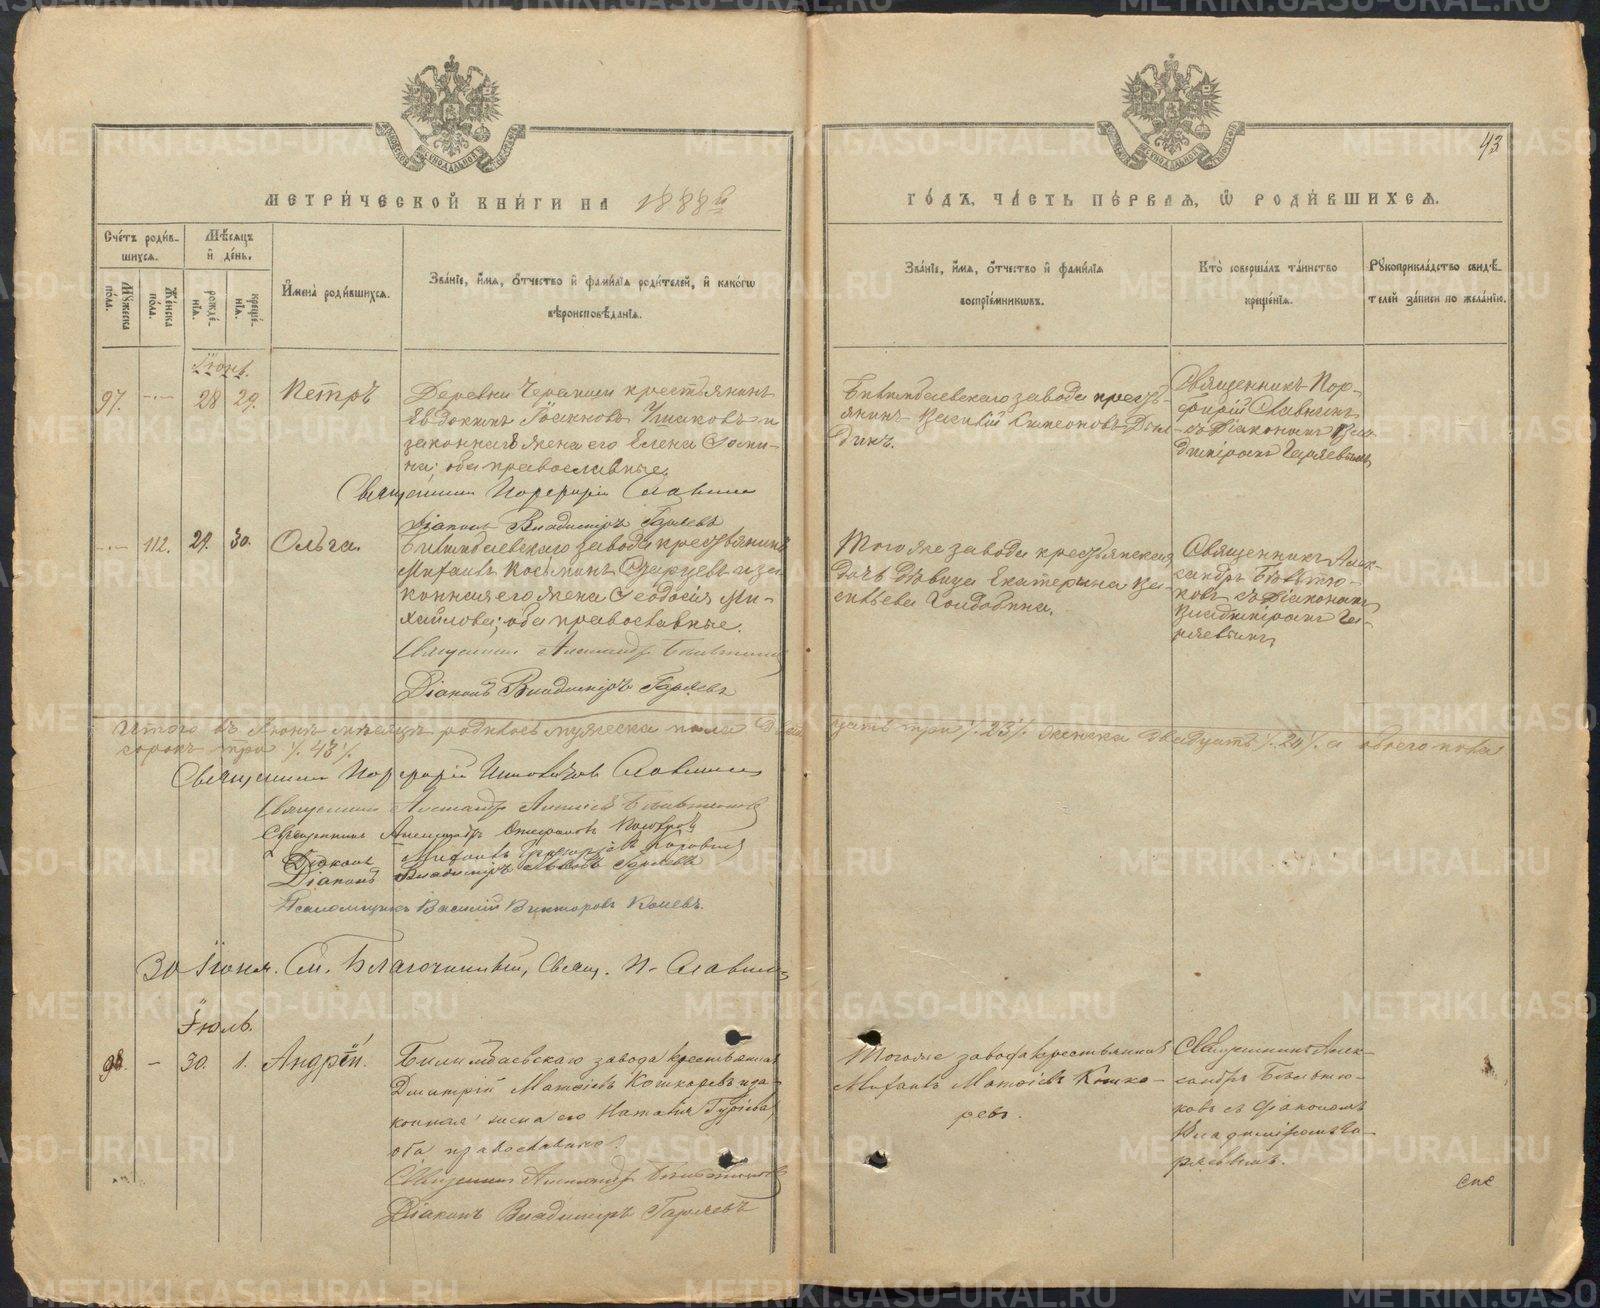 43
МЕТРИ́ЧЕСКОЙ КНИ́ГИ НА 1888й
ГО́ДЪ, ЧА́СТЬ ПЕ́РВАЯ, Ѽ РОДИ́ВШИХСЯ.
Сче́тъ роди́в-
шихся.
Мѣ́сяцъ
и҆ де́нь.
И҆мена̀ роди́вшихся.
Зва́нїе, и҆́мя, ѻ҆́тчество и҆ фами́лїя роди́телей, и҆ како́гѡ
вѣроисповѣ́данїя.
Зва́нїе, и҆́мя, ѻ҆́тчество и҆ фами́лїя
воспрїе́мникѡвъ.
Кто̀ соверша́лъ та́инство
креще́нїя.
Рꙋкоприкла́дство свидѣ́-
телей за́писи по жела́нїю.
Мꙋ́жеска
по́ла.
Же́нска
по́ла.
рожде́-
нїя.
креще́-
нїя.
Іюнь.
97. -.- 28 29. Петръ
Деревни Черемши крестьянинъ
Евдокимъ Іоакимовъ Ушаковъ и
законная жена его Елена Ѳоми-
на; оба православные.
Священникъ Порфирій Славнинъ
Діаконъ Владиміръ Гаряевъ
Билимбаевскаго завода кресть-
янинъ Василій Симеоновъ
динъ.
Священникъ Пор-
фирій Славнинъ
съ Діакономъ Вла-
диміромъ Гаряевымъ
-.- 112. 29. 30. Ольга.
Билимбаевскаго завода крестьянинъ
Михаилъ Косьминъ и за-
конная его жена Ѳеодосія Ми-
хайлова; оба православные.
Священникъ Александръ Бѣльтюковъ
Діаконъ Владиміръ Гаряевъ
Тогоже завода крестьянская
дочь дѣвица Екатерина Ва-
сильева Голдобина.
Священникъ Алек-
сандръ Бѣльтю-
ковъ съ Діакономъ
Владиміромъ Га-
ряевымъ
Итого въ Іюнѣ мѣсяцѣ родилось мужеска пола двад-
цать три /.23/. женска двадцать /.20/. а обоего пола
сорокъ три /.43/.
Священникъ Порфирій Славнинъ
Священникъ Александръ Алексіевъ Бѣльтюковъ
Священникъ Александръ Стефановъ
Діаконъ Михаилъ Григоріевъ
Діаконъ Владиміръ Гаряевъ
Псаломщикъ Василій Викторовъ
30 Іюня. См. Благочинный, Свящ. П. Славнинъ
Іюль.
98. - 30. 1. Андрей.
Билимбаевскаго завода крестьянинъ
Дмитрій Матѳіевъ Кошкаревъ и за-
конная жена его Наталія Гуріева
оба православные
Священникъ Александръ Бѣльтюковъ
Діаконъ Владиміръ Гаряевъ
Тогоже завода крестьянинъ
Михаилъ Матѳіевъ Кошка-
ревъ.
Священникъ Алек-
сандръ Бѣльтю-
ковъ съ діакономъ
Владиміромъ Га-
ряевымъ.
METRIKI.GASO-URAL.RU